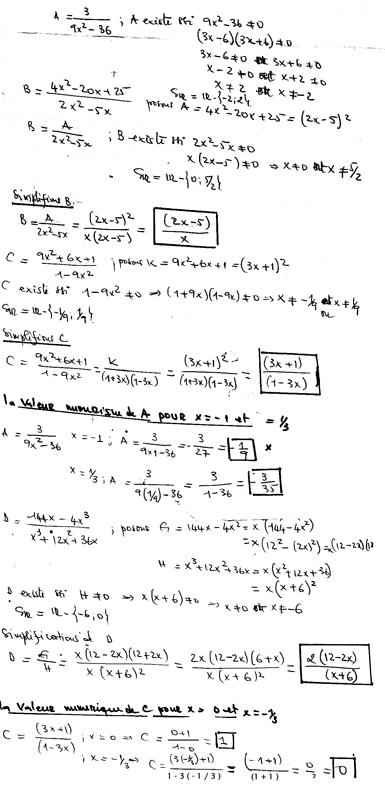 A = 3/(9x²-36) ; A existe ssi 9x²-36 ≠0
(3x-6)(3x+6) ≠0
3x-6≠0 et 3x+6≠0
x-2≠0 et x+2≠0
x≠2 et x≠-2
S_IR = IR-{-2;2}
B = (4x²-20x+25)/(2x²-5x) posons A = 4x²-20x+25 = (2x-5)²
B = A/(2x²-5x) ; B existe ssi 2x²-5x≠0
x(2x-5)≠0 ⇒ x≠0 et x≠5/2
S_IR = IR-{0; 5/2}
Simplifions B.
B = A/(2x²-5x) = (2x-5)²/(x(2x-5)) = (2x-5)/x
C = (9x²+6x+1)/(1-9x²) ; posons K = 9x²+6x+1 = (3x+1)²
C existe ssi 1-9x² ≠0 ⇒ (1+9x)(1-9x)≠0 ⇒ x≠-1/9 et x≠1/9
S_IR = IR-{-1/9, 1/9}
Simplifions C
C = (9x²+6x+1)/(1-9x²) = K/((1+3x)(1-3x)) = (3x+1)²/((1+3x)(1-3x)) = (3x+1)/(1-3x)
la Valeur numérique de A pour x=-1 et = 1/3
A = 3/(9x²-36) x=-1 ; A = 3/(9x1-36) = -3/27 = -1/9 x
x=1/3 ; A = 3/(9(1/9)-36) = 3/(1-36) = -3/35
D = (144x-4x³)/(x³+12x²+36x) ; posons G = 144x-4x² = x(144-4x²)
= x(12²-(2x)²) = x(12-2x)(12
H = x³+12x²+36x = x(x²+12x+36)
= x(x+6)²
D existe ssi H≠0 ⇒ x(x+6)≠0 ⇒ x≠0 et x≠-6
S_IR = IR-{-6,0}
Simplifications d D
D = G/H = x(12-2x)(12+2x)/(x(x+6)²) = 2x(12-2x)(6+x)/(x(x+6)²) = 2(12-2x)/(x+6)
la Valeur numérique de C pour x=0 et x=-1/3
C = (3x+1)/(1-3x) ; x=0 ⇒ C = (0+1)/(1-0) = 1
; x=-1/3 ⇒ C = (3(-1/3)+1)/(1-3(-1/3)) = (-1+1)/(1+1) = 0/2 = 0